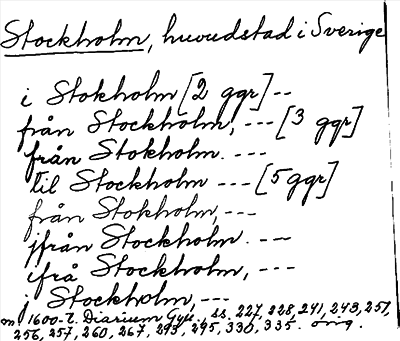 Stockholm, huvudstad i Sverige
i Stokholm [2 ggr] --
från Stockholm, --- [3 ggr]
från Stokholm. ---
til Stockholm --- [5 ggr]
från Stokholm, ---
jfrån Stockholm. ---
ifrå Stockholm, ---
j Stockholm, ---
m 1600-t. Diarium Gyll., ss. 227, 228, 241, 243, 251,
256, 257, 260, 267, 293, 295, 330, 335. orig.